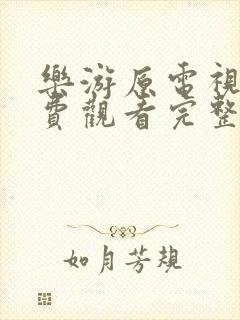 樂游原電視
費觀看完整
如月芳規